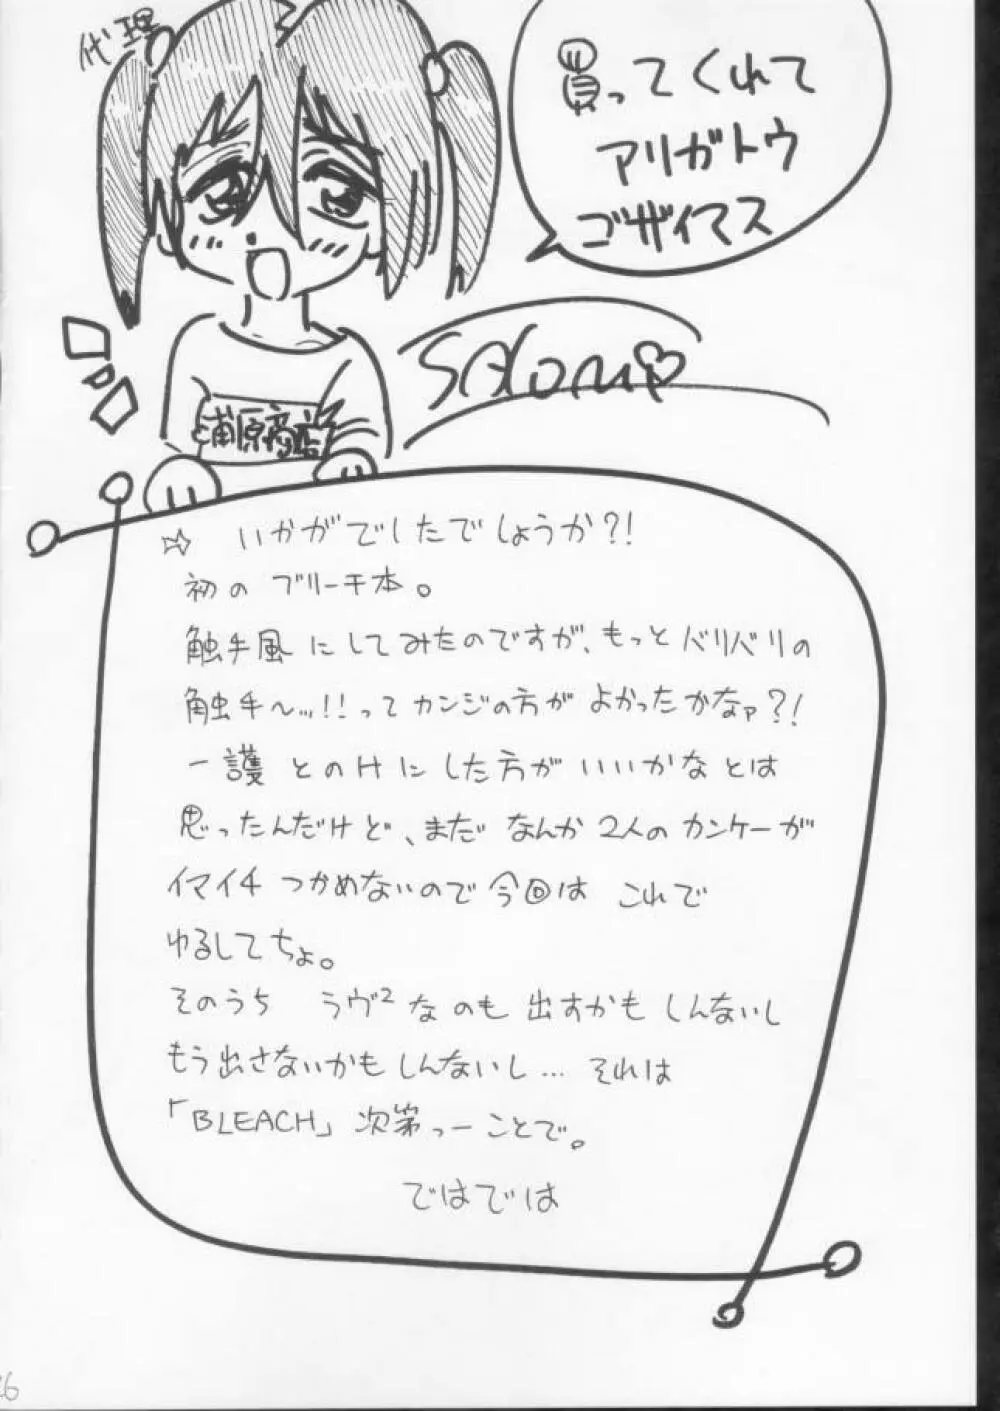 代理
買ってくれて
アリガトウ
ゴザイマス
浦原商店
☆ いかがでしたでしょうか?!
初の ブリーチ本。
触手風にしてみたのですが、もっとバリバリの
触手〜...!!ってカンジの方が よかったかなァ?!
一護とのHにした方がいいかなとは
思ったんだけど、まだ なんか2人のカンケーが
イマイチ つかめないので今回は これで
ゆるしてちょ。
そのうち ラヴ²なのも 出すかも しんないし
もう出さないかも しんないし… それは
「BLEACH」次第っーことで。
ではでは
26